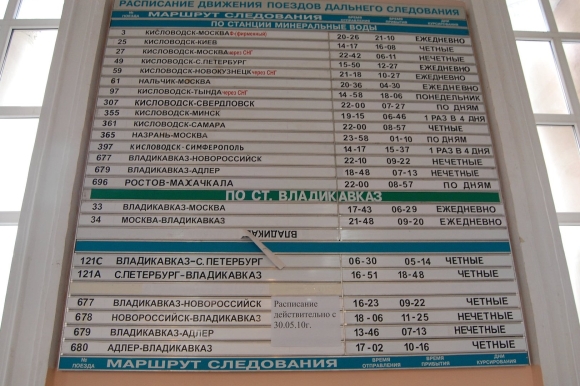 РАСПИСАНИЕ ДВИЖЕНИЯ ПОЕЗДОВ ДАЛЬНЕГО СЛЕДОВАНИЯ
ПОЕЗДА МАРШРУТ СЛЕДОВАНИЯ ВРЕМЯ ОТПРАВЛЕНИЯ ВРЕМЯ ПРИБЫТИЯ ДНИ КУРСИРОВАНИЯ
ПО СТАНЦИИ МИНЕРАЛЬНЫЕ ВОДЫ
3 КИСЛОВОДСК-МОСКВА 20-26 21-10 ЕЖЕДНЕВНО
25 КИСЛОВОДСК-КИЕВ 14-17 16-08 ЧЕТНЫЕ
27 КИСЛОВОДСК-МОСКВА через СНГ 22-42 06-11 НЕЧЕТНЫЕ
49 КИСЛОВОДСК-С.ПЕТЕРБУРГ 15-50 12-27 ЕЖЕДНЕВНО
59 КИСЛОВОДСК-НОВОКУЗНЕЦК через СНГ 21-18 10-27 ЕЖЕДНЕВНО
61 НАЛЬЧИК-МОСКВА 20-36 04-30 ЕЖЕДНЕВНО
97 КИСЛОВОДСК-ТЫНДА через СНГ 14-58 18-06 ПОНЕДЕЛЬНИК
307 КИСЛОВОДСК-СВЕРДЛОВСК 22-00 07-27 ПО ДНЯМ
355 КИСЛОВОДСК-МИНСК 19-15 06-46 1 РАЗ В 4 ДНЯ
361 КИСЛОВОДСК-САМАРА 22-00 08-57 ЧЕТНЫЕ
365 НАЗРАНЬ-МОСКВА 23-58 01-10 ПО ДНЯМ
397 КИСЛОВОДСК-СИМФЕРОПОЛЬ 14-17 15-37 1 РАЗ В 4 ДНЯ
677 ВЛАДИКАВКАЗ-НОВОРОССИЙСК 22-10 09-22 НЕЧЕТНЫЕ
679 ВЛАДИКАВКАЗ-АДЛЕР 18-48 07-13 НЕЧЕТНЫЕ
696 РОСТОВ-МАХАЧКАЛА 22-00 08-57 ПО ДНЯМ
ПО СТ. ВЛАДИКАВКАЗ
33 ВЛАДИКАВКАЗ-МОСКВА 17-43 06-29 ЕЖЕДНЕВНО
34 МОСКВА-ВЛАДИКАВКАЗ 21-48 09-20 ЕЖЕДНЕВНО
ВЛАДИКАВ
121С ВЛАДИКАВКАЗ-С.ПЕТЕРБУРГ 06-30 05-14 ЧЕТНЫЕ
121А С.ПЕТЕРБУРГ-ВЛАДИКАВКАЗ 16-51 18-48 ЧЕТНЫЕ
677 ВЛАДИКАВКАЗ-НОВОРОССИЙСК 16-23 09-22 ЧЕТНЫЕ
678 НОВОРОССИЙСК-ВЛАДИКАВКАЗ 18-06 11-25 НЕЧЕТНЫЕ
679 ВЛАДИКАВКАЗ-АДЛЕР 13-46 07-13 НЕЧЕТНЫЕ
680 АДЛЕР-ВЛАДИКАВКАЗ 17-02 10-16 ЧЕТНЫЕ
Расписание
действительно с
30.05.10г.
№ ПОЕЗДА МАРШРУТ СЛЕДОВАНИЯ ВРЕМЯ ОТПРАВЛЕНИЯ ВРЕМЯ ПРИБЫТИЯ ДНИ КУРСИРОВАНИЯ